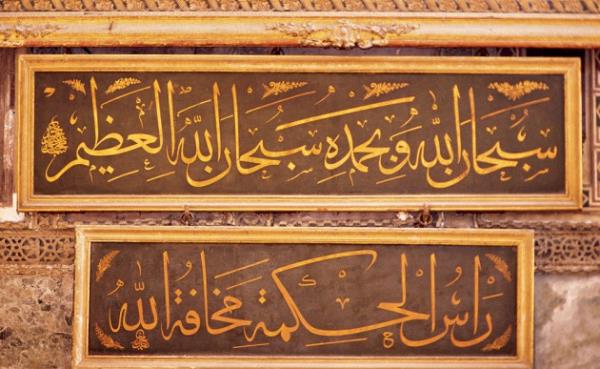 سبحان الله وبحمده سبحان الله العظيم
رأس الحكمة مخافة الله